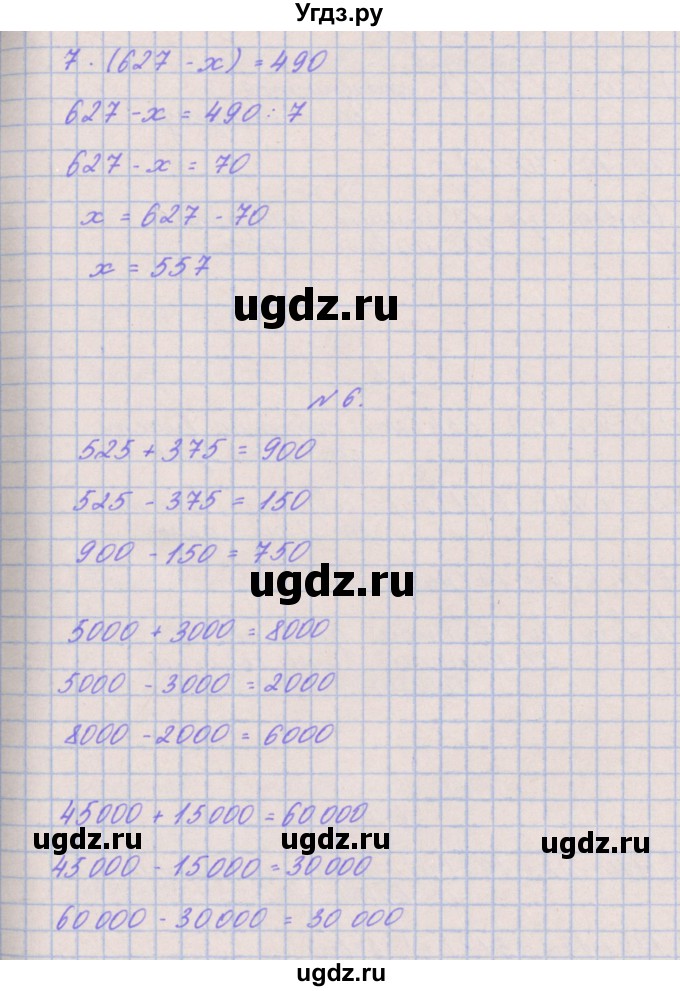 Угдз.ру
7 · (627 - x) = 490
627 - x = 490 : 7
627 - x = 70
x = 627 - 70
x = 557
ugdz.ru
№ 6.
525 + 375 = 900
525 - 375 = 150
900 - 150 = 750
ugdz.ru
5000 + 3000 = 8000
5000 - 3000 = 2000
8000 - 2000 = 6000
45 000 + 15 000 = 60 000
ugdz.ru ugdz.ru ugdz.ru
45 000 - 15 000 = 30 000
60 000 - 30 000 = 30 000
ugdz.ru